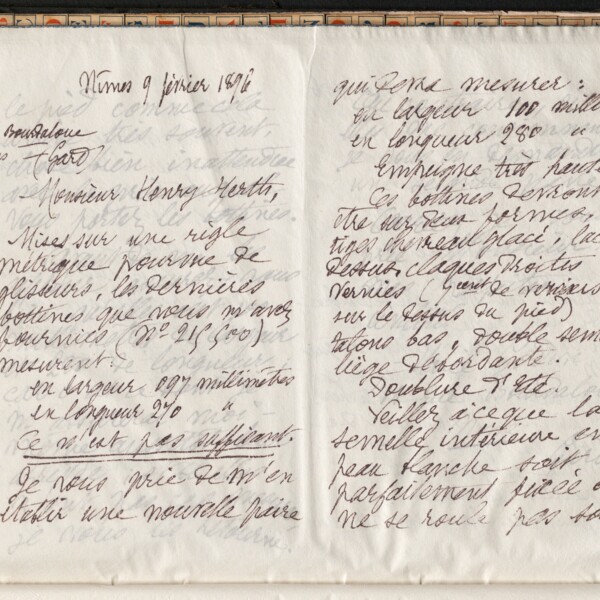 Nîmes 9 février 1896
Bourdaloue
(Gard)
Monsieur Henry Herth,
Mises sur une règle
métrique pourvue de
glisseurs, les dernières
bottines que vous m'avez
fournies (N° 215,500)
mesurent:
en largeur 097 millimètres
en longueur 270 "
Ce n'est pas suffisant.
Je vous prie de m'en
établir une nouvelle paire
qui devra mesurer:
en largeur 100 milli
en longueur 280 "
Empeigne très haute
Ces bottines devront
être sur deux formes,
tiges chevreau glacé, lac
dessus, claques droites
vernies ( de vernis
sur le dessus du pied)
talons bas, double sem
liège débordante.
Doublure d'été.
Veillez à ce que la
semelle intérieure en
peau blanche soit
parfaitement fixée
ne se roule pas so